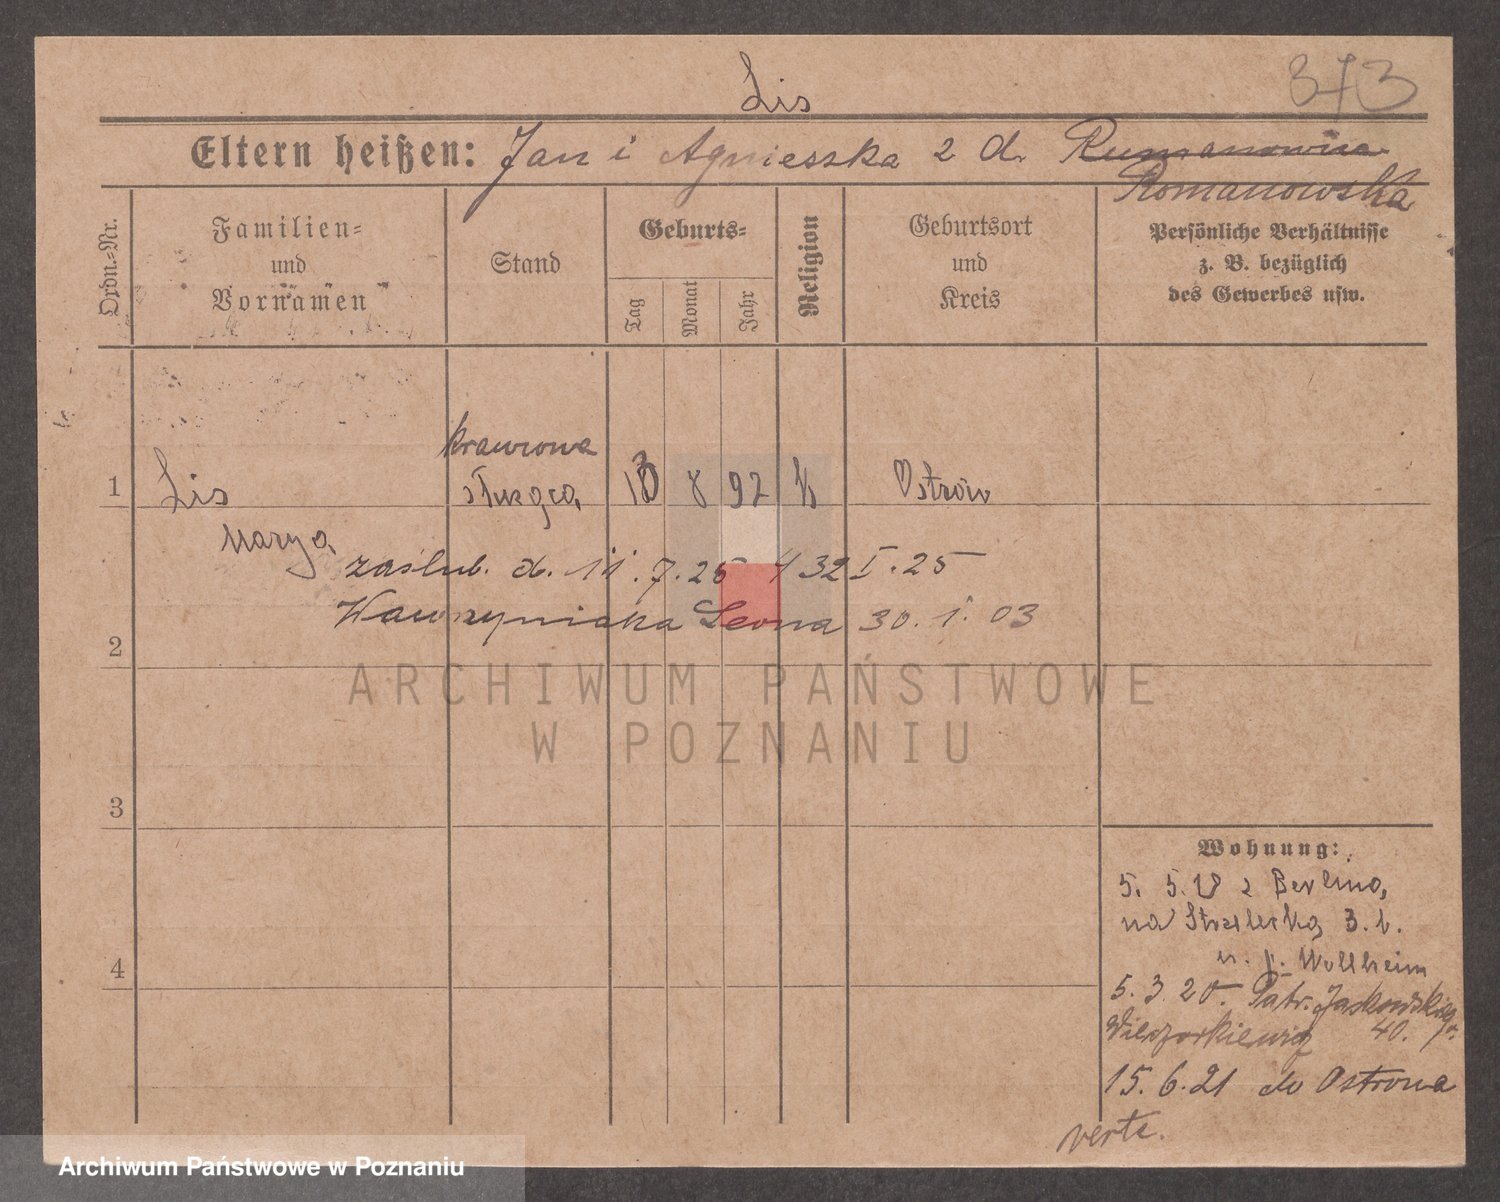 Lis
373
Eltern heißen: Jan i Agnieszka z d. Rumanowica
Romanowska
Ordn.-Nr.
Familien- und Vornamen
Stand
Geburts-
Tag
Monat
Jahr
Religion
Geburtsort und Kreis
Persönliche Verhältnisse z. B. bezüglich des Gewerbes usw.
krawcowa
1 Lis służąca 13 8 92 k Ostrów
Marya
zaślub. d. 11.7.25 432 I.25
Wawrzyniaka Leona 30.1.03
2
ARCHIWUM PAŃSTWOWE
W POZNANIU
3
4
Wohnung:
5. 5. 18 z Berlina,
na Strzelecką 3. b.
u. p. Wollheim
5. 3. 20. Patr. Jackowskiego
40.
15.6.21 do Ostrowa
verte.
Archiwum Państwowe w Poznaniu